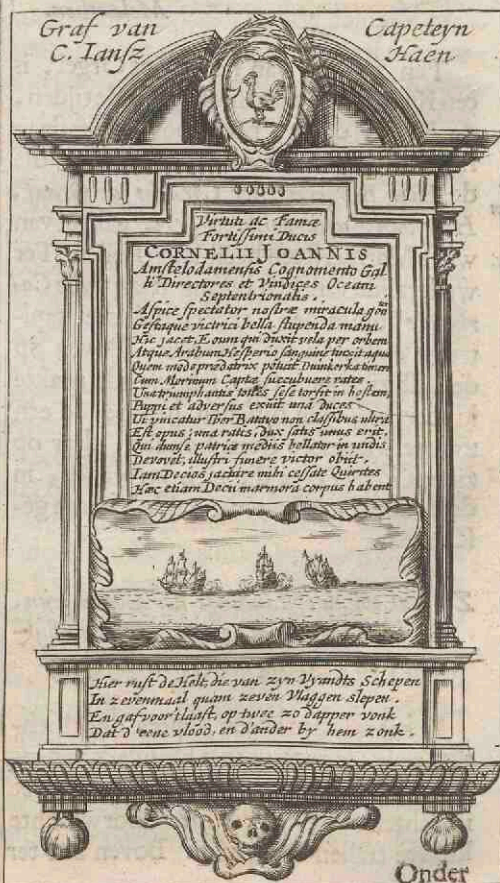 Graf van
C. Iansz
Capeteyn
Haen
Virtuti ac Famæ
Fortissimi Ducis
CORNELII JOANNIS
Amstelodamensis Cognomento Gal
li Directores et Vindices Oceani
Septentrionalis.
Aspice spectator nostræ miracula
Gestaque victrici bella stupenda manu
Hic jacet, Eoum qui duxit vela per orbem
Atque Arabum Hesperio sanguine tinxit aqua
Quem modo prædatrix potuit Duinkerka timere
Cum Morinum Captæ succubuere rates.
Una triumphantis toties sese torsit in hostem,
Puppi et adversus exuit una Duces
Ut vincatur Iber Batavo non classibus ultra
Est opus; una ratis, dux satis unus erit.
Qui dum se patriæ mediis bellator in undis
Devovet, illustri funere victor obiit.
Iam Decios jactare mihi cessate Quirites
Hæc etiam Decii marmora corpus habent
Hier rust de Helt, die van zyn Vyandts Schepen
In zevenmaal quam zeven Vlaggen slepen.
En gaf voor tlaast, op twee zo dapper vonk
Dat d'eene vlood, en d'ander by hem zonk.
Onder